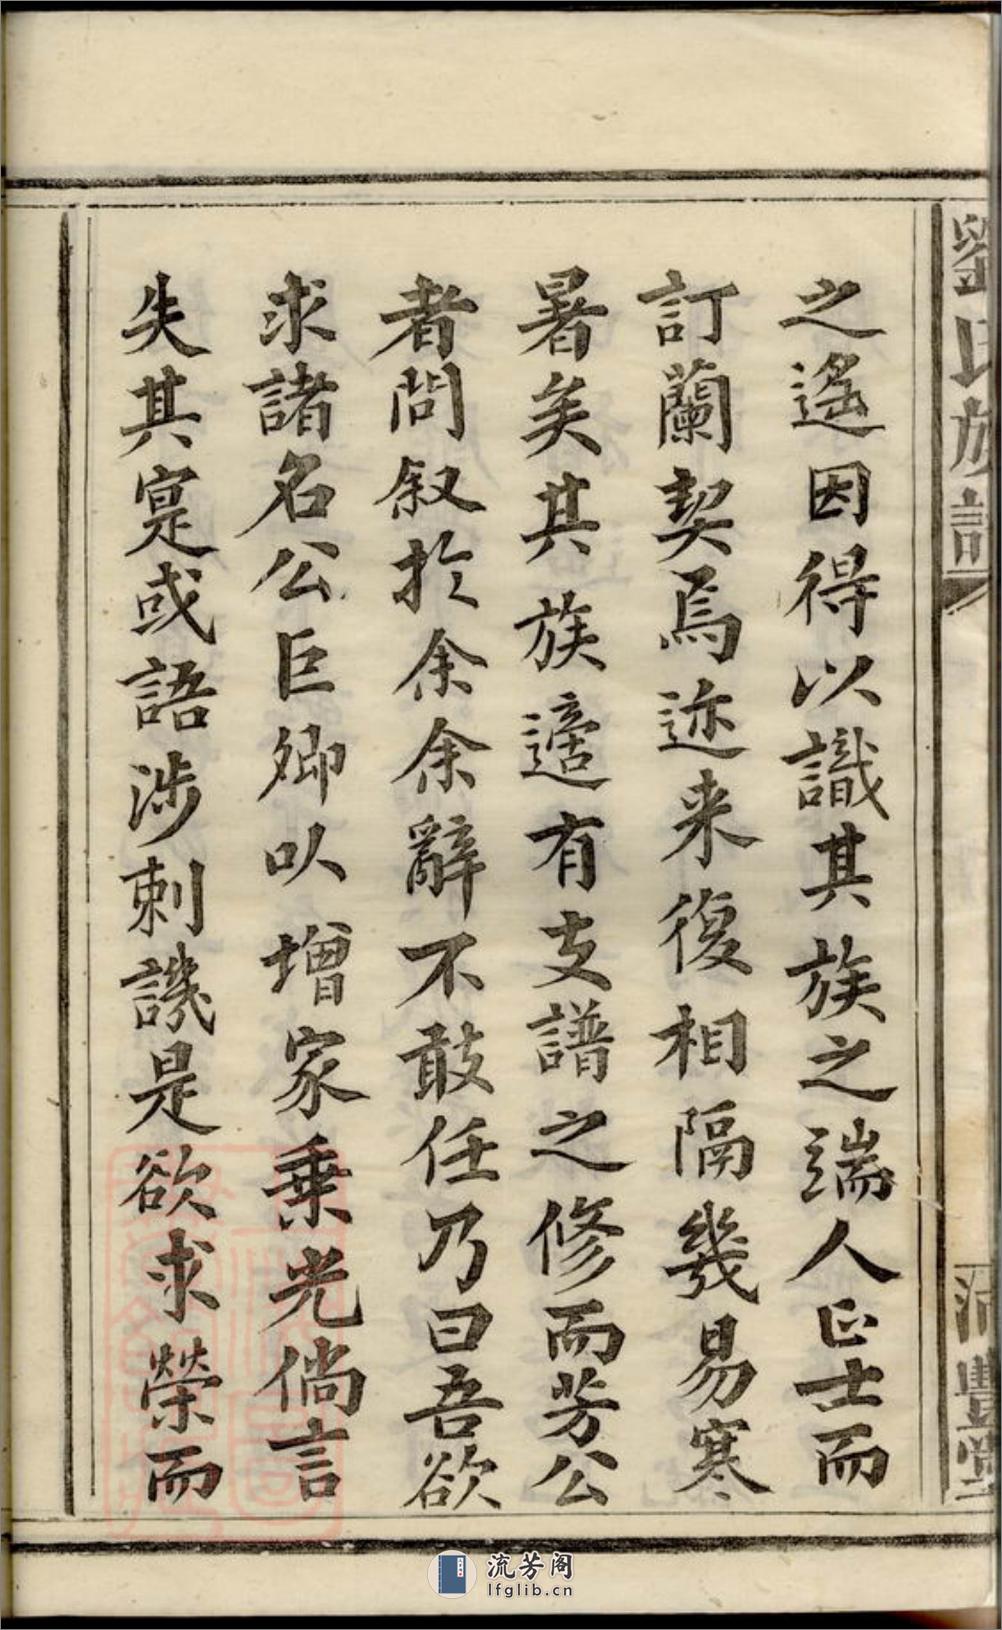 劉氏族譜
之遙因得以識其族之端人正士而
訂蘭契焉迩来復相隔幾易寒
暑矣其族適有支譜之修而芳公
者問叙於余余辭不敢任乃曰吾欲
求諸名公巨卿以增家乗光倘言
失其寔或語涉刺譏是欲求榮而
流芳阁
lfglib.cn